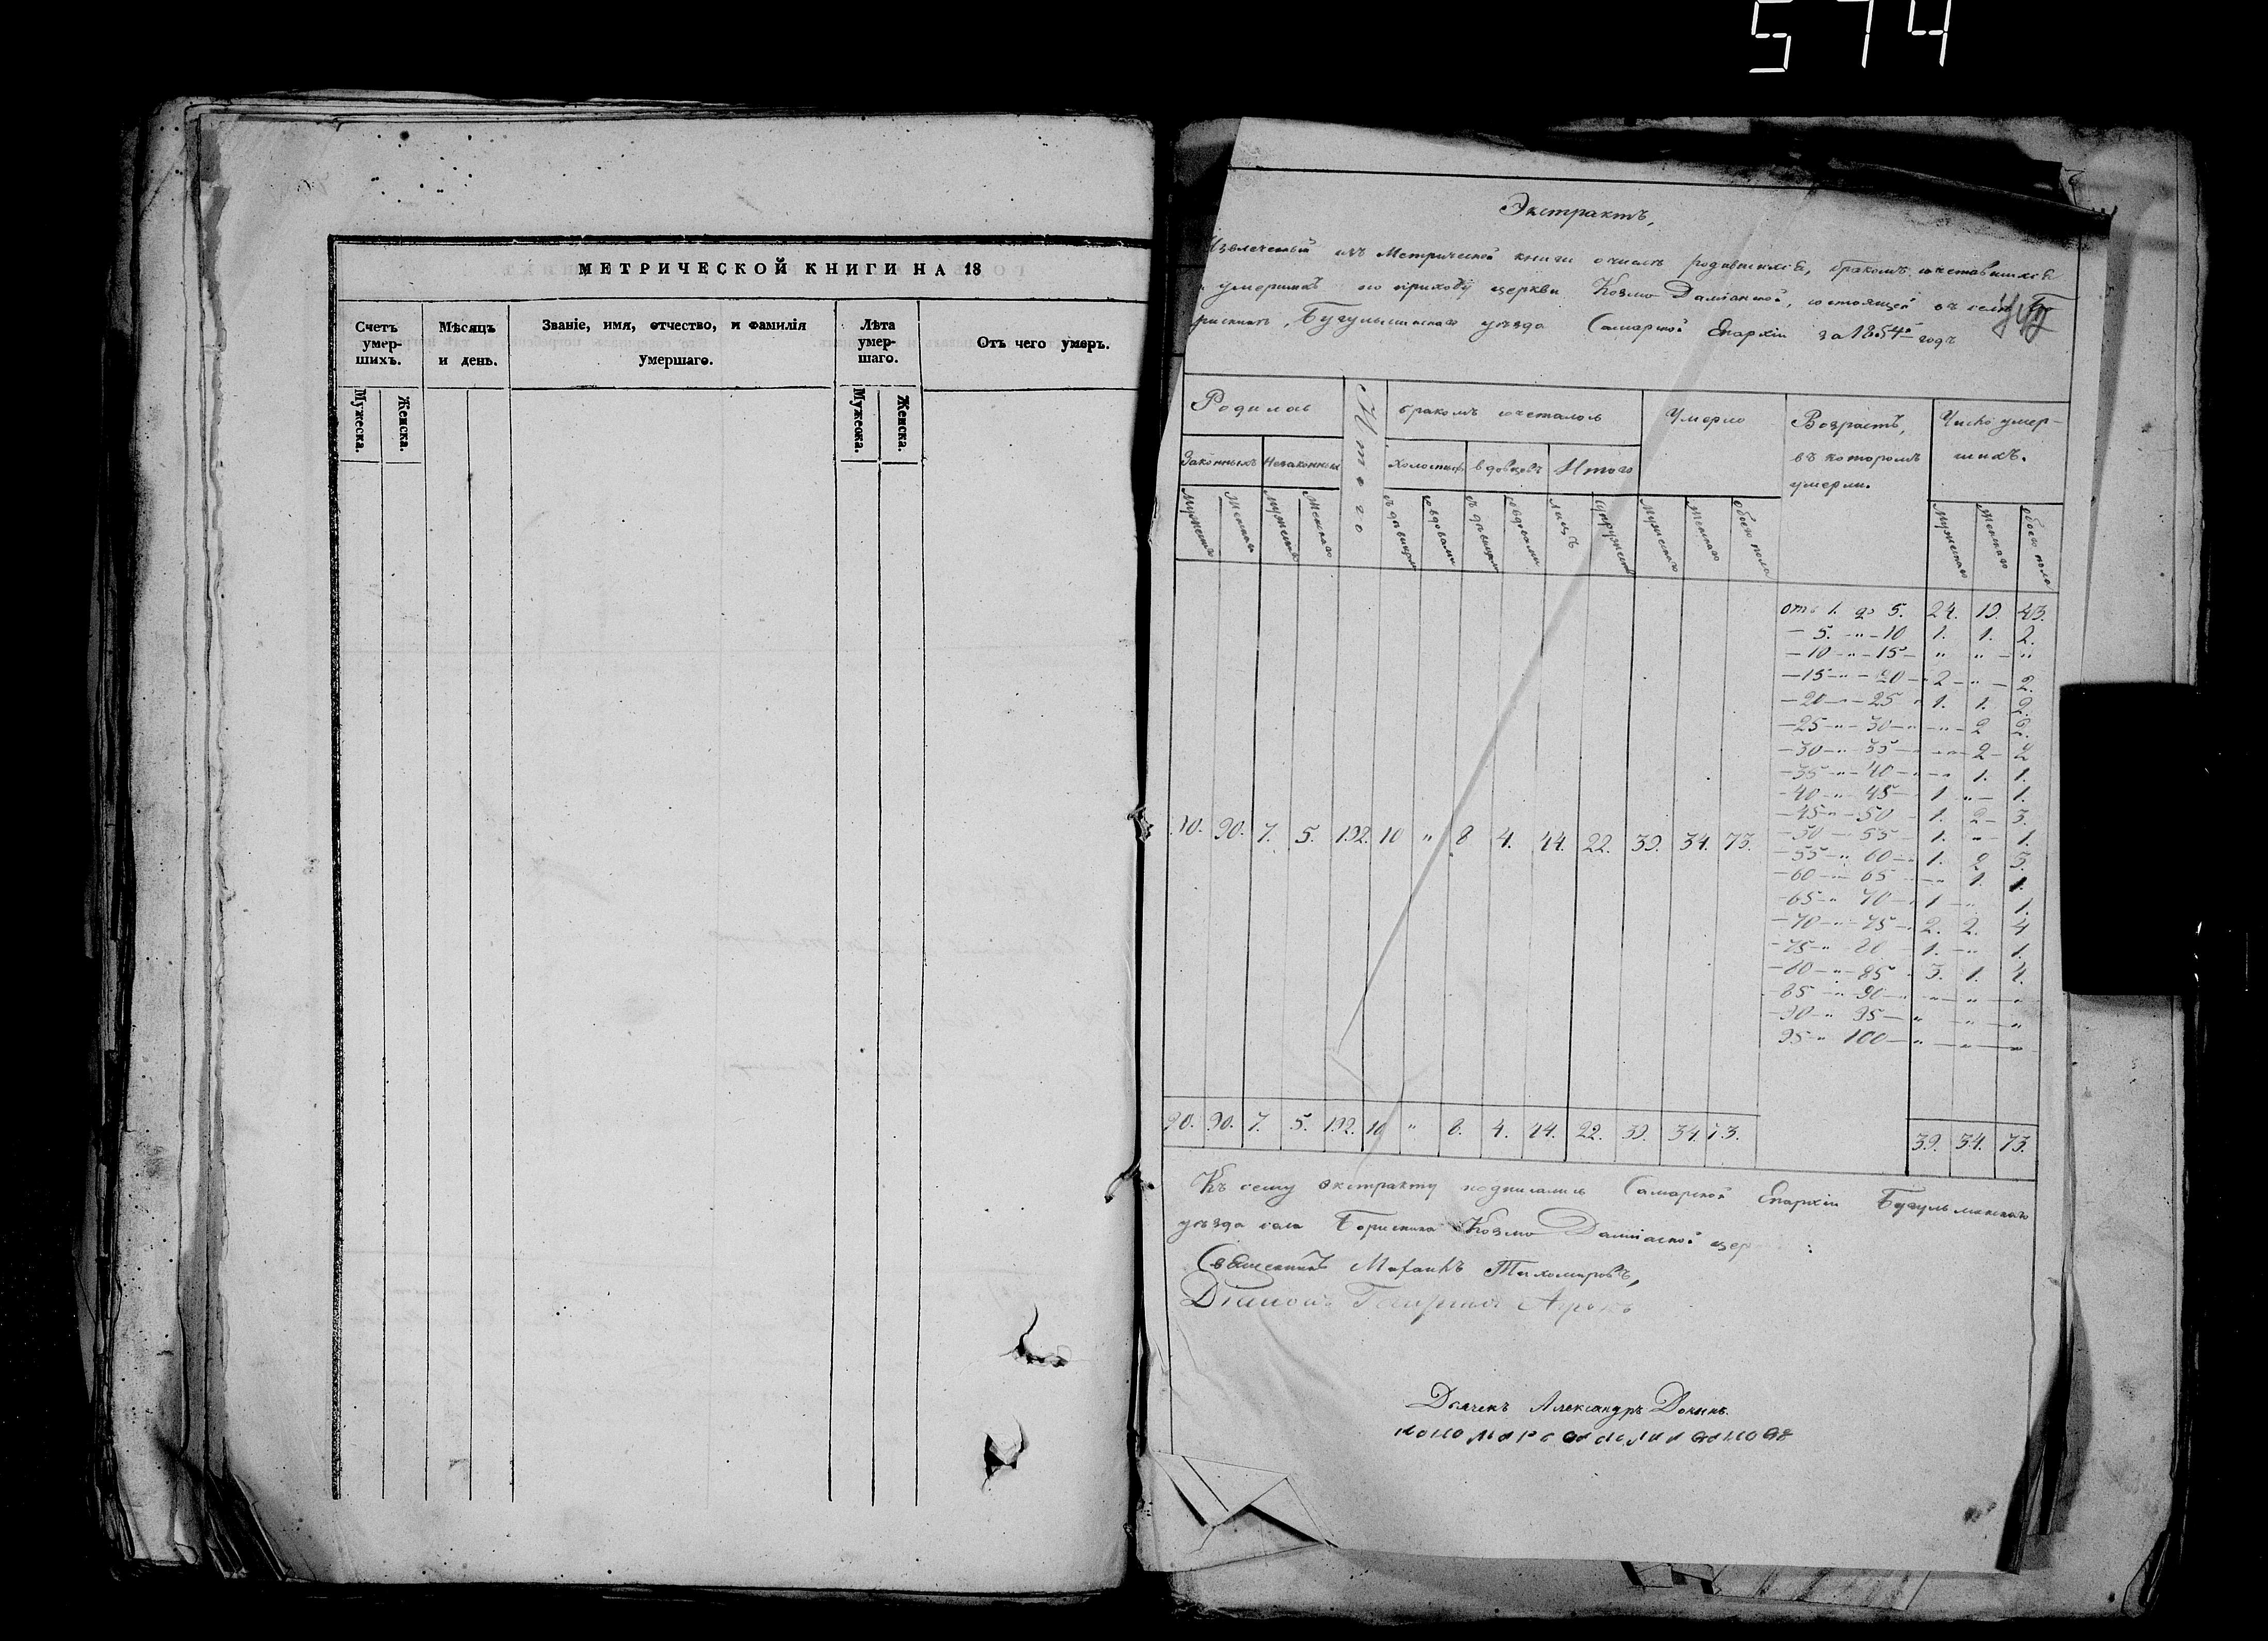 574
МЕТРИЧЕСКОЙ КНИГИ НА 18
Счетъ умер-шихъ.
Мѣсяцъ и день.
Званіе, имя, отчество, и фамилія умершаго.
Лѣта умер-шаго.
Отъ чего умеръ.
Мужеска. Женска. Мужеска. Женска.
Экстрактъ,
Извлеченный изъ Метрической книги о числѣ родившихся, бракомъ сочетавшихся
и умершихъ по приходу церкви Козмо Даміанской, состоящей въ селѣ Бо
рискинѣ, Бугульминскаго уѣзда Самарской Епархіи за 1854й годъ
Родилось
Итого
бракомъ сочеталось
Умерло
Возрастъ, въ которомъ умерли.
Число умер-шихъ.
Законныхъ Незаконных холостых вдовцовъ Итого
Мужескаго Женскаго Мужескаго Женскаго съ дѣвицами со вдовами съ дѣвицами со вдовами лицъ супружествъ Мужескаго Женскаго обоего пола Мужескаго Женскаго обоего пола
отъ 1. до 5. 24. 19. 43.
— 5. — " — 10 1. 1. 2.
— 10 — " — 15 — " " — "
— 15 — " — 20 — 2 — " — 2.
— 20 — " — 25 " 1. 1. 2.
— 25 — " — 30 — " — " — 2 2.
— 30 — " 35 — " — 2 — 2
— 35 — " — 40 — " — " 1. 1.
— 40 — " — 45 — 1 " — 1.
— 45 — " — 50 — 1. 2 — 3.
— 50 — 55 — 1. " 1.
— 55 — " 60 — 1. 2 3.
— 60 — 65 — " 1. 1.
— 65 — " 70 — 1 — " 1.
— 70 — " — 75 — 2. 2. 4
— 75 — " 80 — 1. — " 1.
— 80 — " — 85 " 3. 1. 4.
— 85 — " 90 — " — " — " — "
— 90 — " 95 — " — " — "
95 — " 100 — " — " — "
90. 90. 7. 5. 192. 10 " 8 4. 44. 22. 39. 34. 73.
90. 90. 7. 5. 192. 10 " 8. 4. 44. 22. 39. 34. 73. 39. 34. 73.
Къ сему экстракту подписались Самарской Епархіи Бугульминскаго
уѣзда села Борискина Козмо Даміанской цер
Священникъ Михаилъ Тихомировъ,
Діаконъ Гавріилъ
Дьячекъ Александръ Докинъ.
пономарь